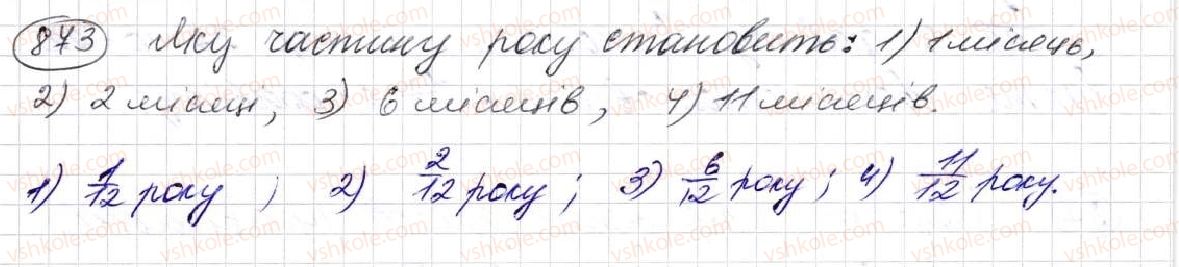 873 Яку частину року становить: 1) 1 місяць,
2) 2 місяці, 3) 6 місяців, 4) 11 місяців.
1) 1/12 року ; 2) 2/12 року ; 3) 6/12 року ; 4) 11/12 року.